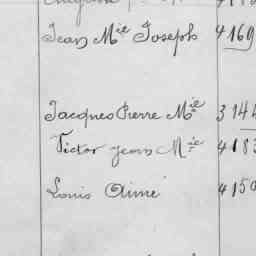 Jean M^ie Joseph 4169
Jacques Pierre M^ie 3144
Victor Jean M^ie 4183
Louis Aimé 4150